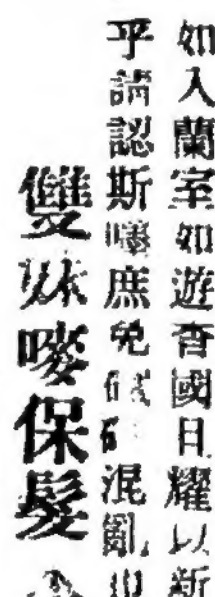 如入蘭室如遊香國日耀以新
乎請認斯嘜庶免混亂
雙妹嘜保髮